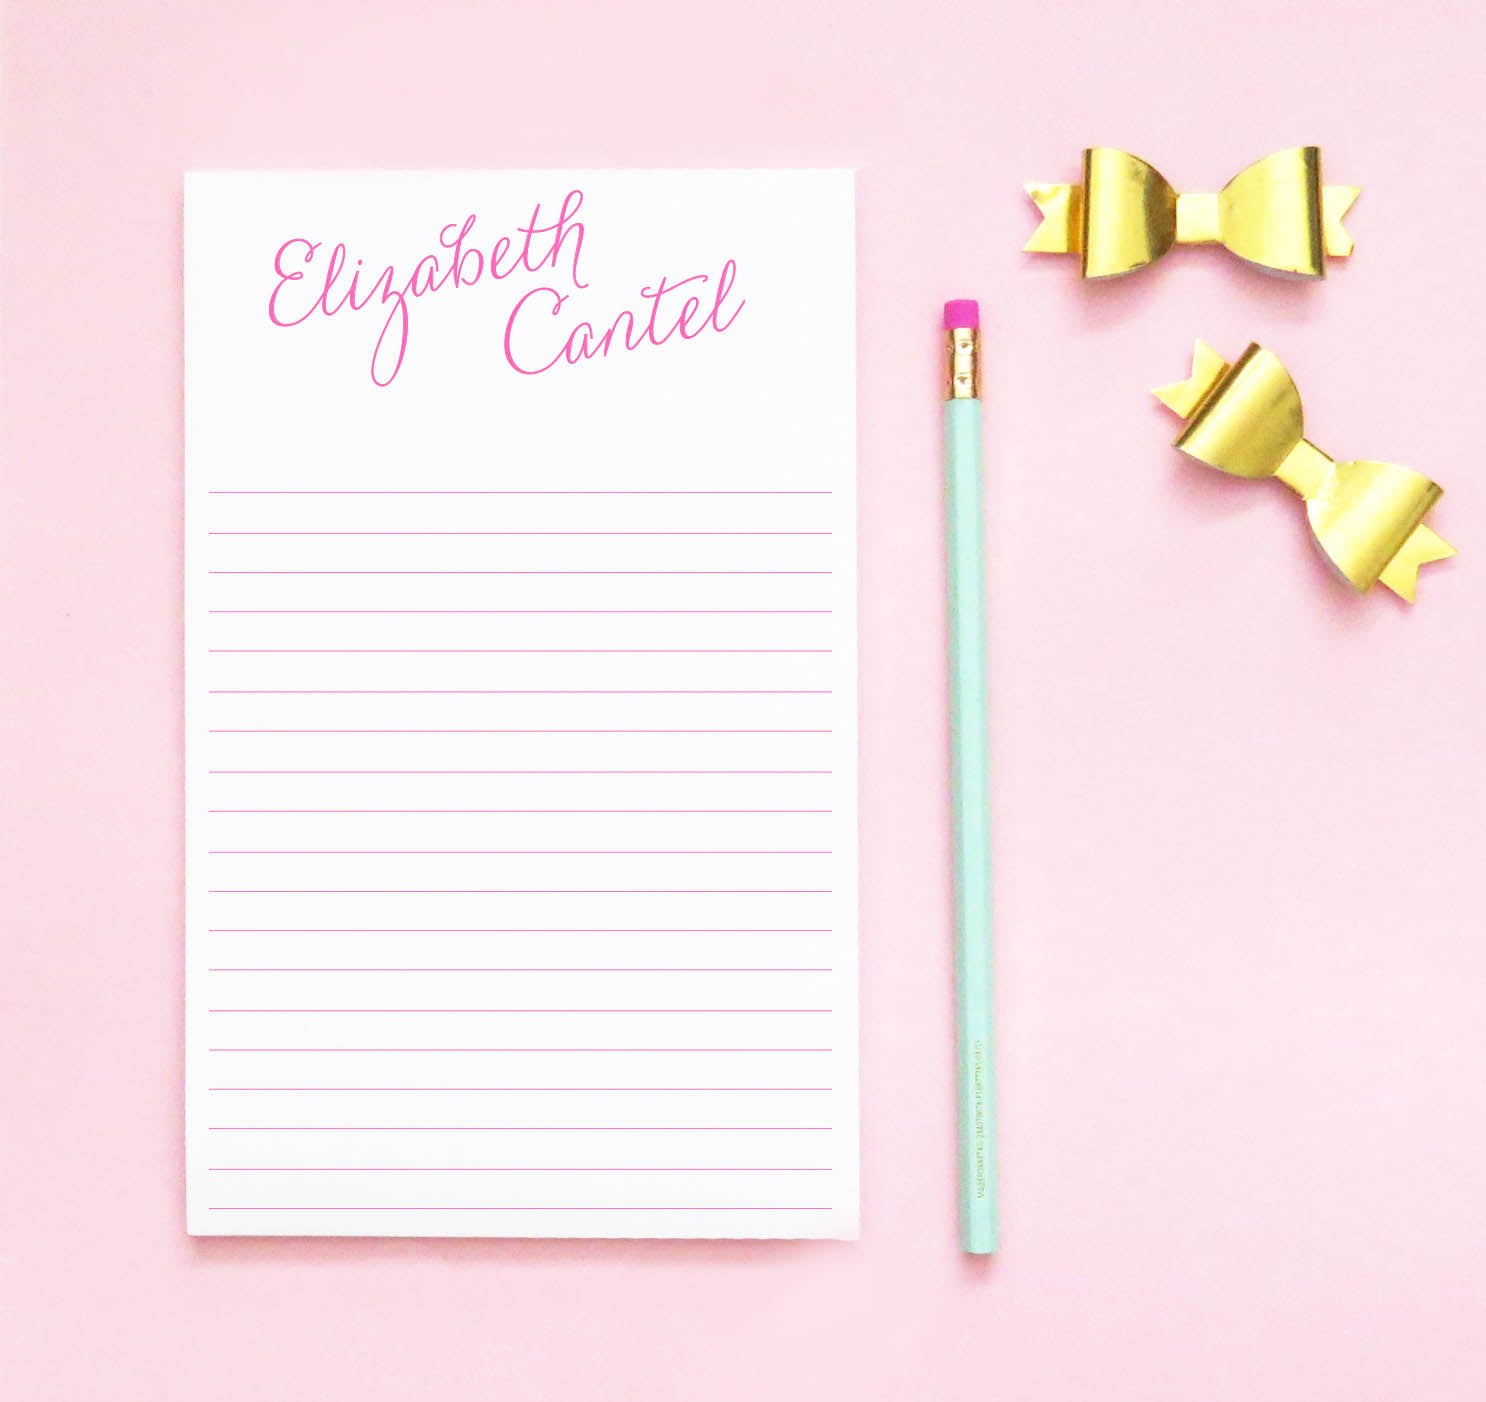 Elizabeth
Cantel